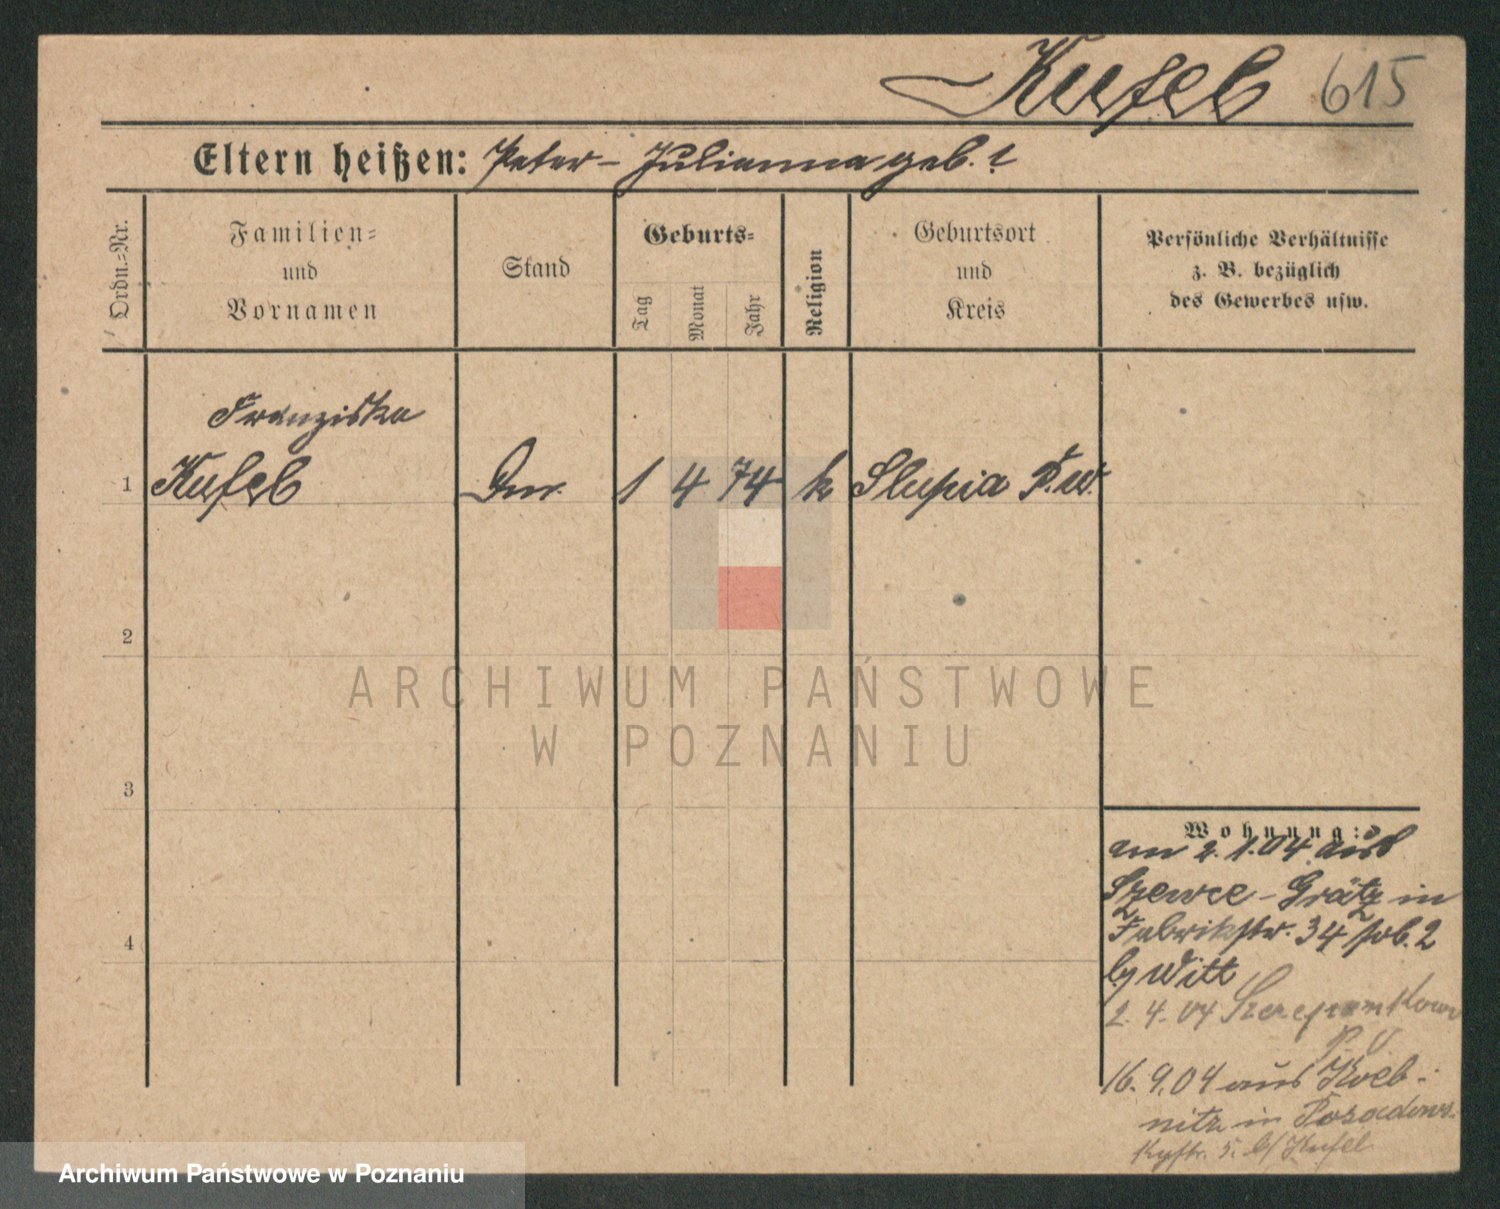 Kufel 615
Eltern heißen: Peter – Julianna geb. ?
Ordn.-Nr.
Familien-
und
Vornamen
Stand
Geburts-
Tag
Monat
Jahr
Religion
Geburtsort
und
Kreis
Persönliche Verhältnisse
z. B. bezüglich
des Gewerbes usw.
Franziska
1 Kufel 1 4 74 k Slupia P. W.
2
ARCHIWUM PAŃSTWOWE
W POZNANIU
3
Wohnung:
am 2.1.04 aus
Szewce – Grätz in
4 Fabrikstr. 34 2
by Witt
2. 4. 04
16. 9. 04 aus Koeb-
nitz in Posadows-
kystr. 5. b/ Kufel
Archiwum Państwowe w Poznaniu